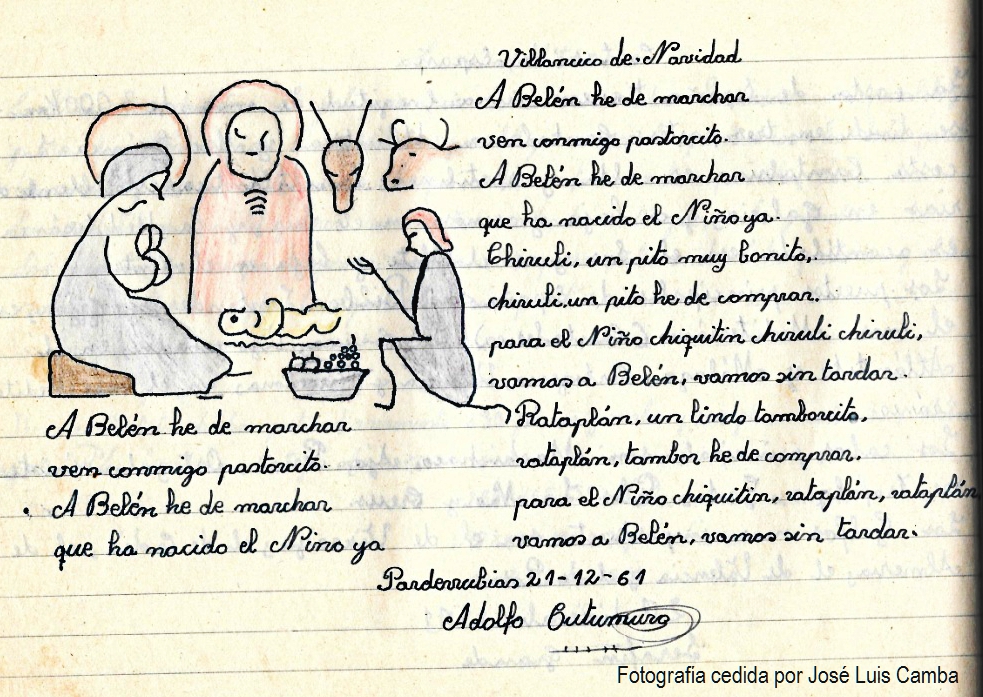 Villancico de Navidad
A Belén he de marchar
ven conmigo pastorcito.
A Belén he de marchar
que ha nacido el Niño ya.
Chiruli, un pito muy bonito,
chiruli un pito he de comprar.
para el Niño chiquitin chiruli chiruli,
vamos a Belén, vamos sin tardar.
Rataplán, un lindo tamborcito,
rataplán, tambor he de comprar.
para el Niño chiquitin, rataplán, rataplán
vamos a Belén, vamos sin tardar.
A Belén he de marchar
ven conmigo pastorcito.
A Belén he de marchar
que ha nacido el Nino ya
Parderrubias 21-12-61
Adolfo Outumuro
Fotografia cedida por José Luis Camba